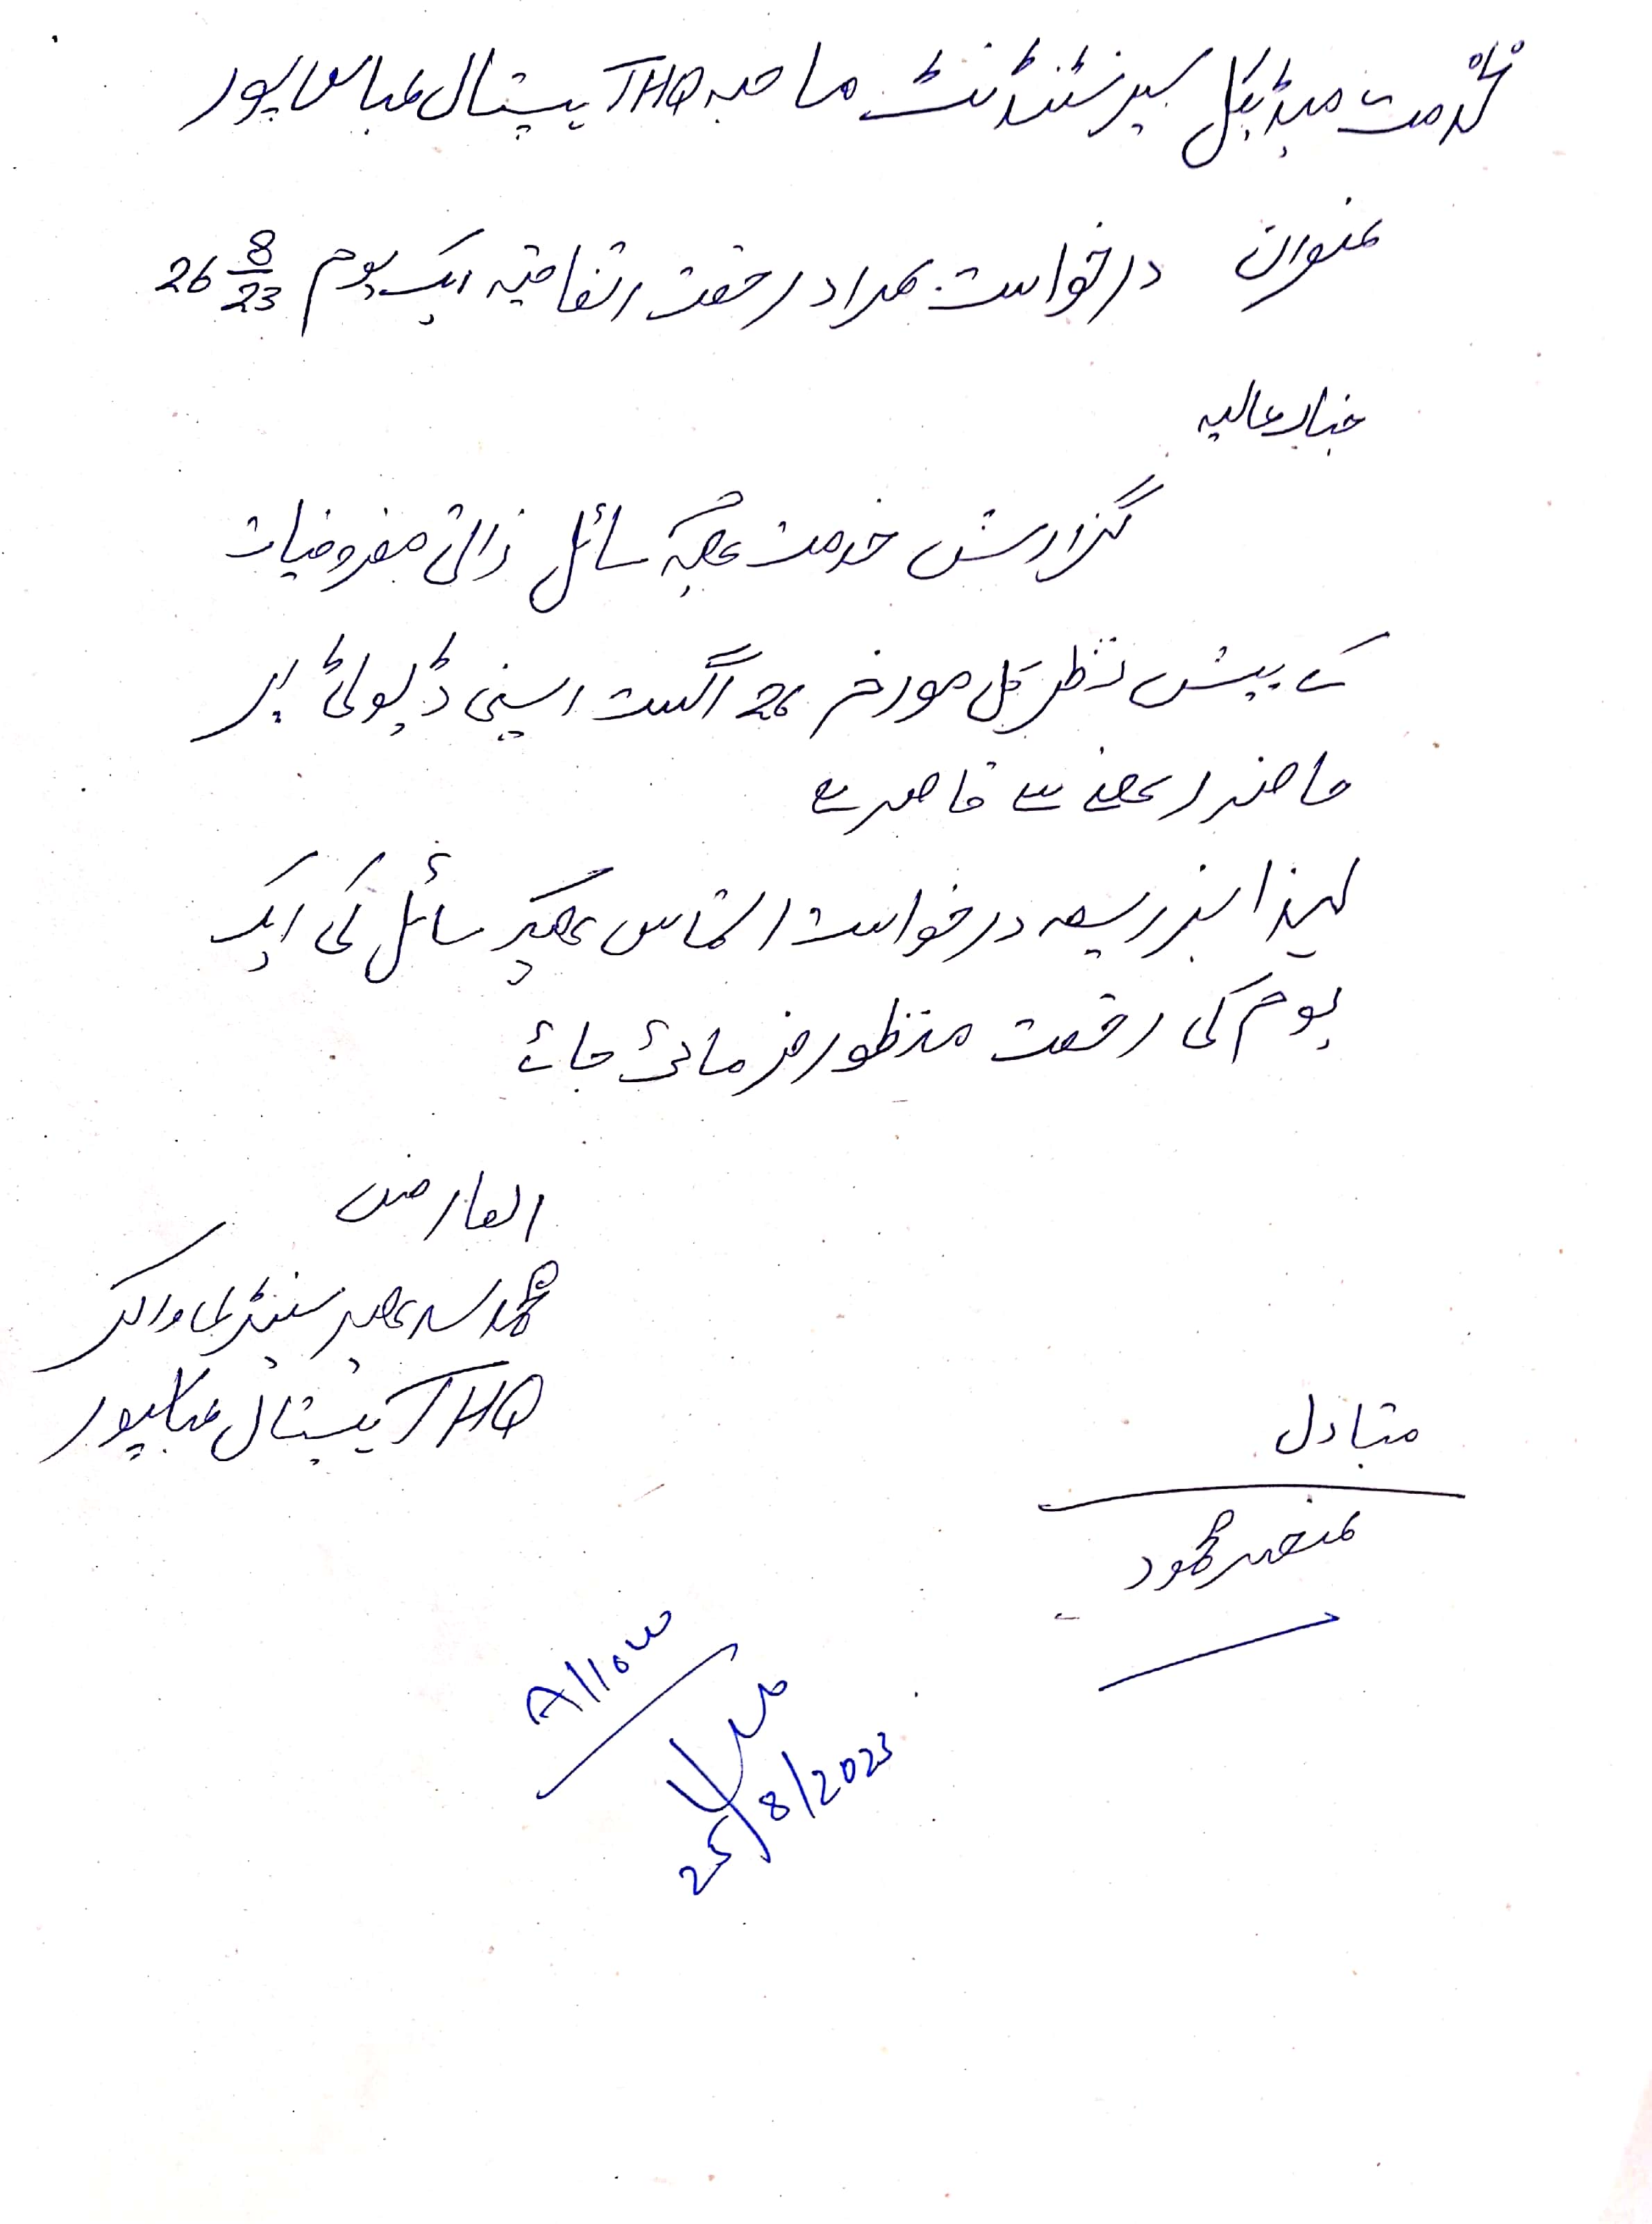 بخدمت میڈیکل سپرنٹنڈنٹ صاحبہ THQ ہسپتال عباسپور
عنوان درخواست بمراد رخصت اتفاقیہ ایک یوم 26 8/23
جناب عالیہ
گزارش خدمت ہیکہ سائل ذاتی مصروفیات
کے پیش نظر کل مورخہ 26 اگست اپنی ڈیوٹی پر
حاضر رہنے سے قاصر ہے
لہذا بذریعہ درخواست التماس ہیکہ سائل کی ایک
یوم کی رخصت منظور فرمائی جائے
العارض
محمد سینٹری ورکر
THQ ہسپتال عباسپور
متبادل
محمود
Allow
25/8/2023